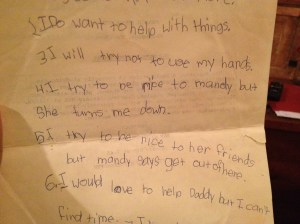 2.I Do want to help with things.
3.I will try not to use my hands.
4.I try to be nice to mandy but
she turns me down.
5.I try to be nice to her friends
but mandy says get out of here.
6.I would love to help Daddy but I can't
find time.